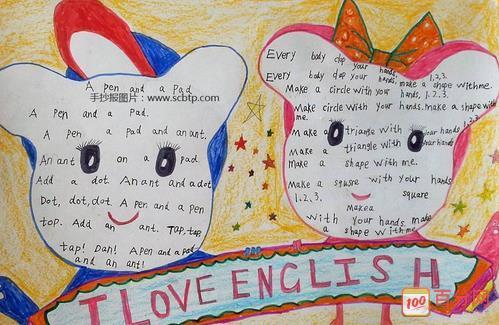 A Pen and a Pad
手抄报图片：www.scbtp.com
A Pen and a Pad.
A Pen a Pad and an ant.
An ant on a Pad.
Add a dot. An ant and a dot
Dot, dot, dot A Per. and a pen
top. Add an ant. Tap, tap,
tap! Dan! A Pen and a pad
and an ant!
Every body clap your hands,
Every body clap your hands, 1,2,3.
Make a circle with your hands, make a shape with me.
1.2.3.
Make circle with your hands. make a shape with
me.
Make a triangle with your hands
1.2.3
Make a triangle with your hands
Make a shape with me.
Make a square with your hands
1.2.3. square
Make a
with your hands. make
a shape with me.
I LOVE ENGLISH
100